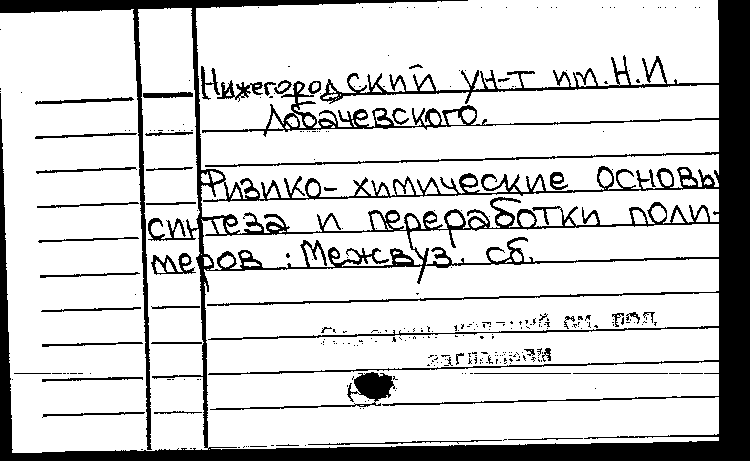 Нижегородский ун-т им. Н.И.
Лобачевского.
Физико-химические основы
синтеза и переработки поли-
меров : Межвуз. сб.
Перечень изданий см. под
заглавием